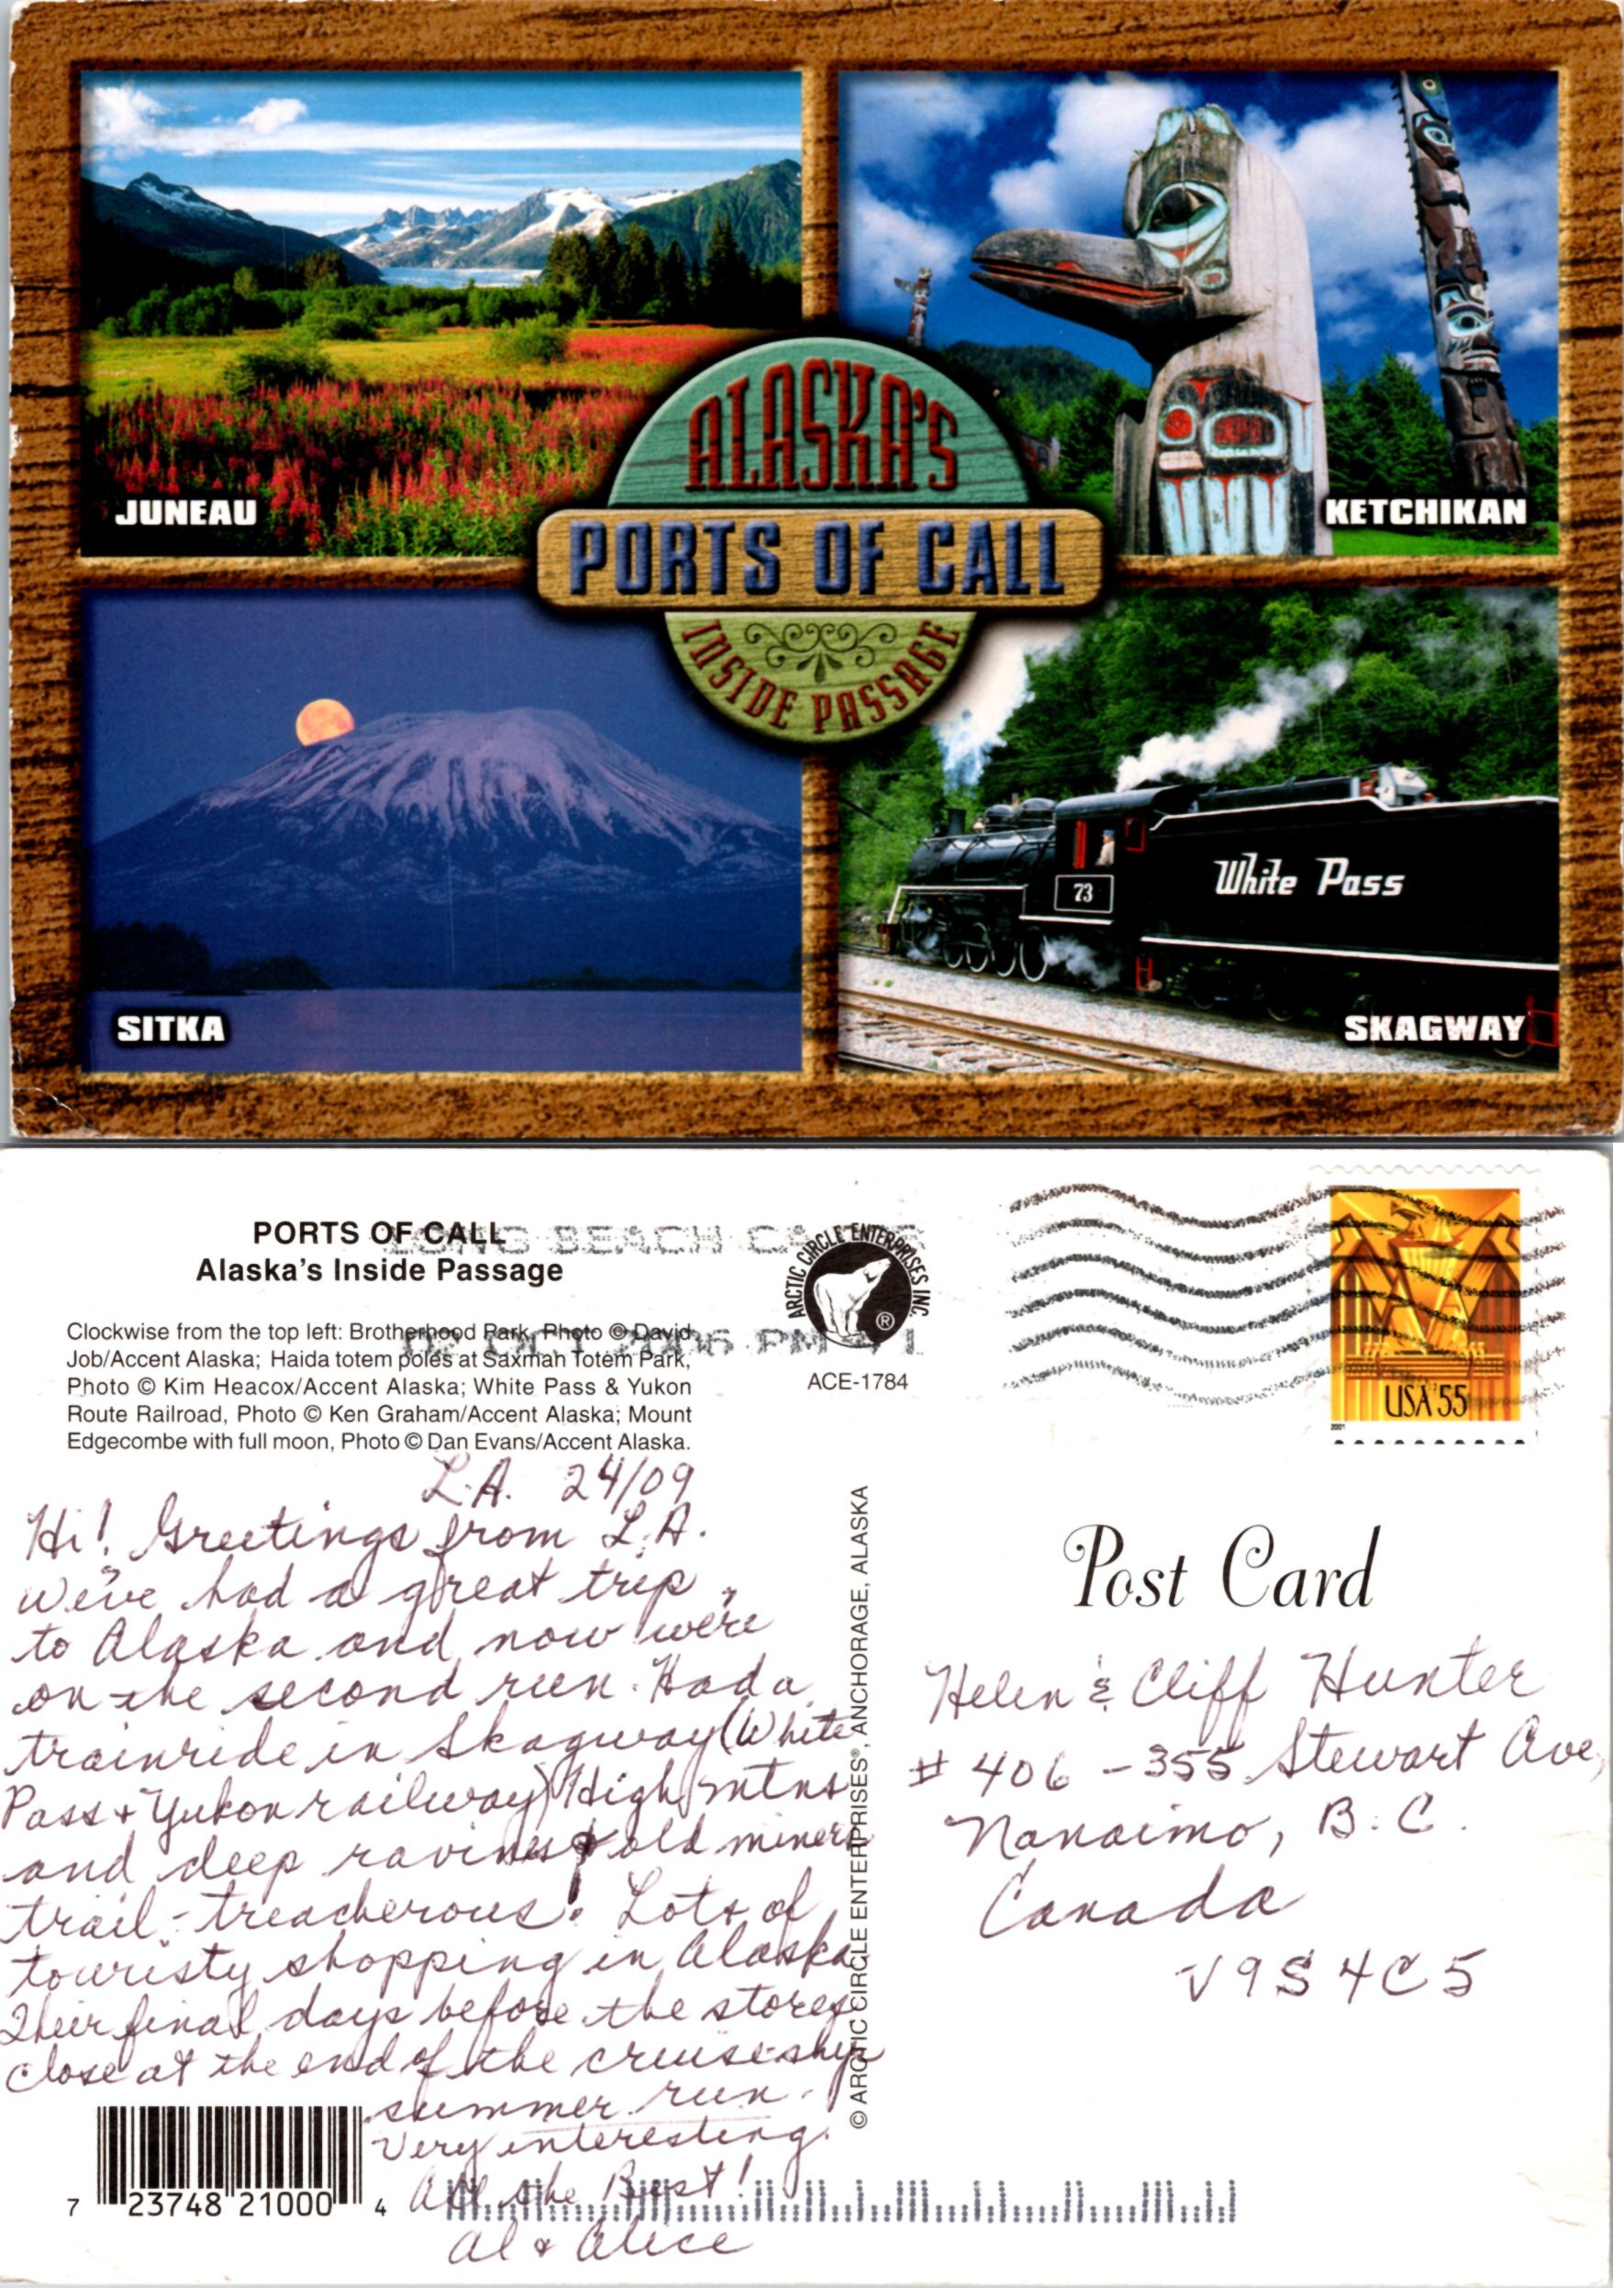 JUNEAU
KETCHIKAN
ALASKA'S
PORTS OF CALL
INSIDE PASSAGE
SITKA
73
White Pass
SKAGWAY
PORTS OF CALL
Alaska's Inside Passage
Clockwise from the top left: Brotherhood Park, Photo © David
Job/Accent Alaska; Haida totem poles at Saxman Totem Park,
Photo © Kim Heacox/Accent Alaska; White Pass & Yukon
Route Railroad, Photo © Ken Graham/Accent Alaska; Mount
Edgecombe with full moon, Photo © Dan Evans/Accent Alaska.
LONG BEACH CA
02 OCT 2006 PM
ARCTIC CIRCLE ENTERPRISES INC.
®
ACE-1784
USA 55
2001
L.A. 24/09
Hi! Greetings from L.A.
We've had a great trip
to Alaska and now we're
on the second run. Had a
trainride in Skagway (White
Pass + Yukon railway) High mtns
and deep ravines + old miners
trail - treacherous! Lots of
touristy shopping in Alaska
Their final days before the stores
close at the end of the cruiseship
summer run.
Very interesting.
All the Best!
Al & Alice
© ARCTIC CIRCLE ENTERPRISES®, ANCHORAGE, ALASKA
Post Card
Helen & Cliff Hunter
# 406 - 355 Stewart Ave,
Nanaimo, B.C.
Canada
V9S 4C5
7 23748 21000 4